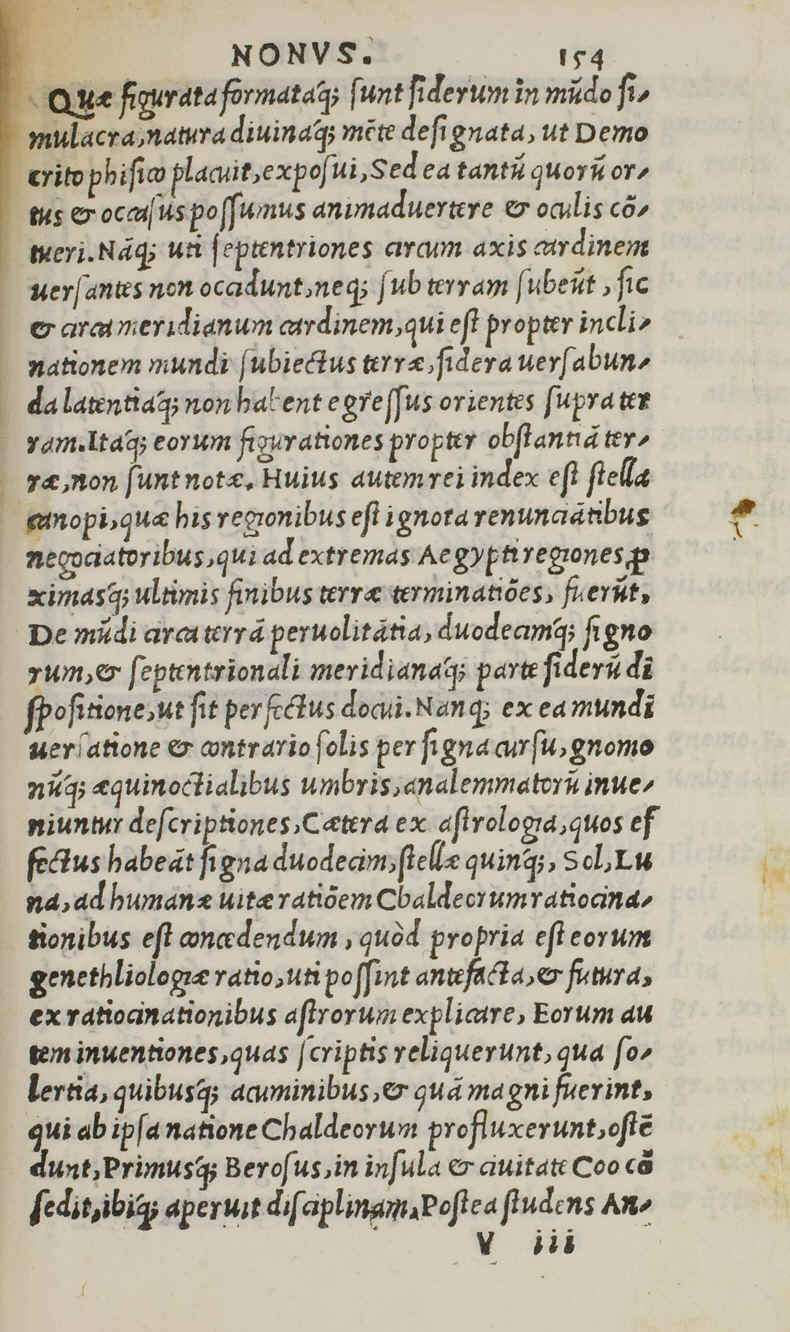 NONVS. 154
Quæ figurata formataq́; ſunt ſiderum in mũdo ſi-
mulacra, natura diuinaq́; mẽte deſignata, ut Demo
crito phiſico placuit, expoſui, Sed ea tantũ quorũ or-
tus & occaſus poſſumus animaduertere & oculis cõ-
tueri. Nãq; uti ſeptentriones circum axis cardinem
uerſantes non occidunt, neq; ſub terram ſubeũt, ſic
& circa meridianum cardinem, qui eſt propter incli-
nationem mundi ſubiectus terræ, ſidera uerſabun-
da latentiaq́; non habent egreſſus orientes ſupra ter
ram. Itaq́; eorum figurationes propter obſtantiã ter-
ræ, non ſunt notæ. Huius autem rei index eſt ſtella
canopi, quæ his regionibus eſt ignota renunciãtibus
negociatoribus, qui ad extremas Aegypti regiones, ꝓ
ximasq́; ultimis finibus terræ terminatiões, fuerũt,
De mũdi circa terrã peruolitãtia, duodecimq́; ſigno
rum, & ſeptentrionali meridianaq́; parte ſiderũ di
ſpoſitione, ut ſit perfectus docui. Nanq; ex ea mundi
uerſatione & contrario ſolis per ſigna curſu, gnomo
nũq́; æquinoctialibus umbris, analemmatorũ inue-
niuntur deſcriptiones, Cætera ex aſtrologia, quos ef
fectus habeãt ſigna duodecim, ſtellæ quinq́;, Sol, Lu
na, ad humanæ uitæ ratiõem Chaldeorum ratiocina-
tionibus eſt concedendum, quòd propria eſt eorum
genethliologiæ ratio, uti poſſint antefacta, & futura,
ex ratiocinationibus aſtrorum explicare, Eorum au
tem inuentiones, quas ſcriptis reliquerunt, qua ſo-
lertia, quibusq́; acuminibus, & quã magni fuerint,
qui ab ipſa natione Chaldeorum profluxerunt, oſtẽ
dunt, Primusq́; Beroſus, in inſula & ciuitate Coo cõ
ſedit, ibiq́; aperuit diſciplinam, Poſtea ſtudens An-
V iii